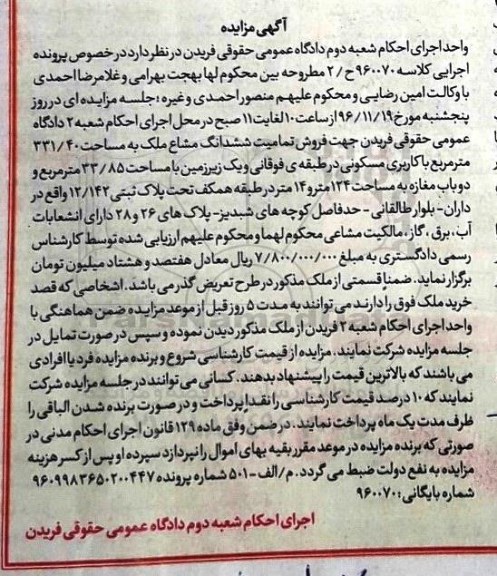 آگهی مزایده
واحد اجرای احکام شعبه دوم دادگاه عمومی حقوقی فریدن در نظر دارد در خصوص پرونده
اجرایی کلاسه ۹۶۰۰۷۰ ح/۲ مطروحه بین محکوم لها بهجت بهرامی و غلامرضا احمدی
با وکالت امین رضایی و محکوم علیهم منصور احمدی و غیره؛ جلسه مزایده ای در روز
پنجشنبه مورخ ۹۶/۱۱/۱۹ از ساعت ۱۰ لغایت ۱۱ صبح در محل اجرای احکام شعبه ۲ دادگاه
عمومی حقوقی فریدن جهت فروش تمامیت ششدانگ مشاع ملک به مساحت ۳۳۱/۴۰
مترمربع با کاربری مسکونی در طبقه ی فوقانی و یک زیرزمین با مساحت ۳۳/۸۵ مترمربع و
دو باب مغازه به مساحت ۱۲۴ متر و ۱۴ متر در طبقه همکف تحت پلاک ثبتی ۱۲/۱۴۲ واقع در
داران- بلوار طالقانی - حدفاصل کوچه های شبدیز- پلاک های ۲۶ و ۲۸ دارای انشعابات
آب، برق، گاز، مالکیت مشاعی محکوم لهما و محکوم علیهم ارزیابی شده توسط کارشناس
رسمی دادگستری به مبلغ ۷/۸۰۰/۰۰۰/۰۰۰ ریال معادل هفتصد و هشتاد میلیون تومان
برگزار نماید. ضمناً قسمتی از ملک مذکور در طرح تعریض گذر می باشد. اشخاصی که قصد
خرید ملک فوق را دارند می توانند به مدت ۵ روز قبل از موعد مزایده ضمن هماهنگی با
واحد اجرای احکام شعبه ۲ فریدن از ملک مذکور دیدن نموده و سپس در صورت تمایل در
جلسه مزایده شرکت نمایند. مزایده از قیمت کارشناسی شروع و برنده مزایده فرد یا افرادی
می باشند که بالاترین قیمت را پیشنهاد بدهند. کسانی می توانند در جلسه مزایده شرکت
نمایند که ۱۰ درصد قیمت کارشناسی را نقداً پرداخت و در صورت برنده شدن الباقی را
ظرف مدت یک ماه پرداخت نمایند. در ضمن وفق ماده ۱۲۹ قانون اجرای احکام مدنی در
صورتی که برنده مزایده در موعد مقرر بقیه بهای اموال را نپردازد سپرده او پس از کسر هزینه
مزایده به نفع دولت ضبط می گردد. م/الف - ۵۰۱ شماره پرونده ۹۶۰۹۹۸۳۶۵۰۲۰۰۴۴۷
شماره بایگانی: ۹۶۰۰۷۰
اجرای احکام شعبه دوم دادگاه عمومی حقوقی فریدن